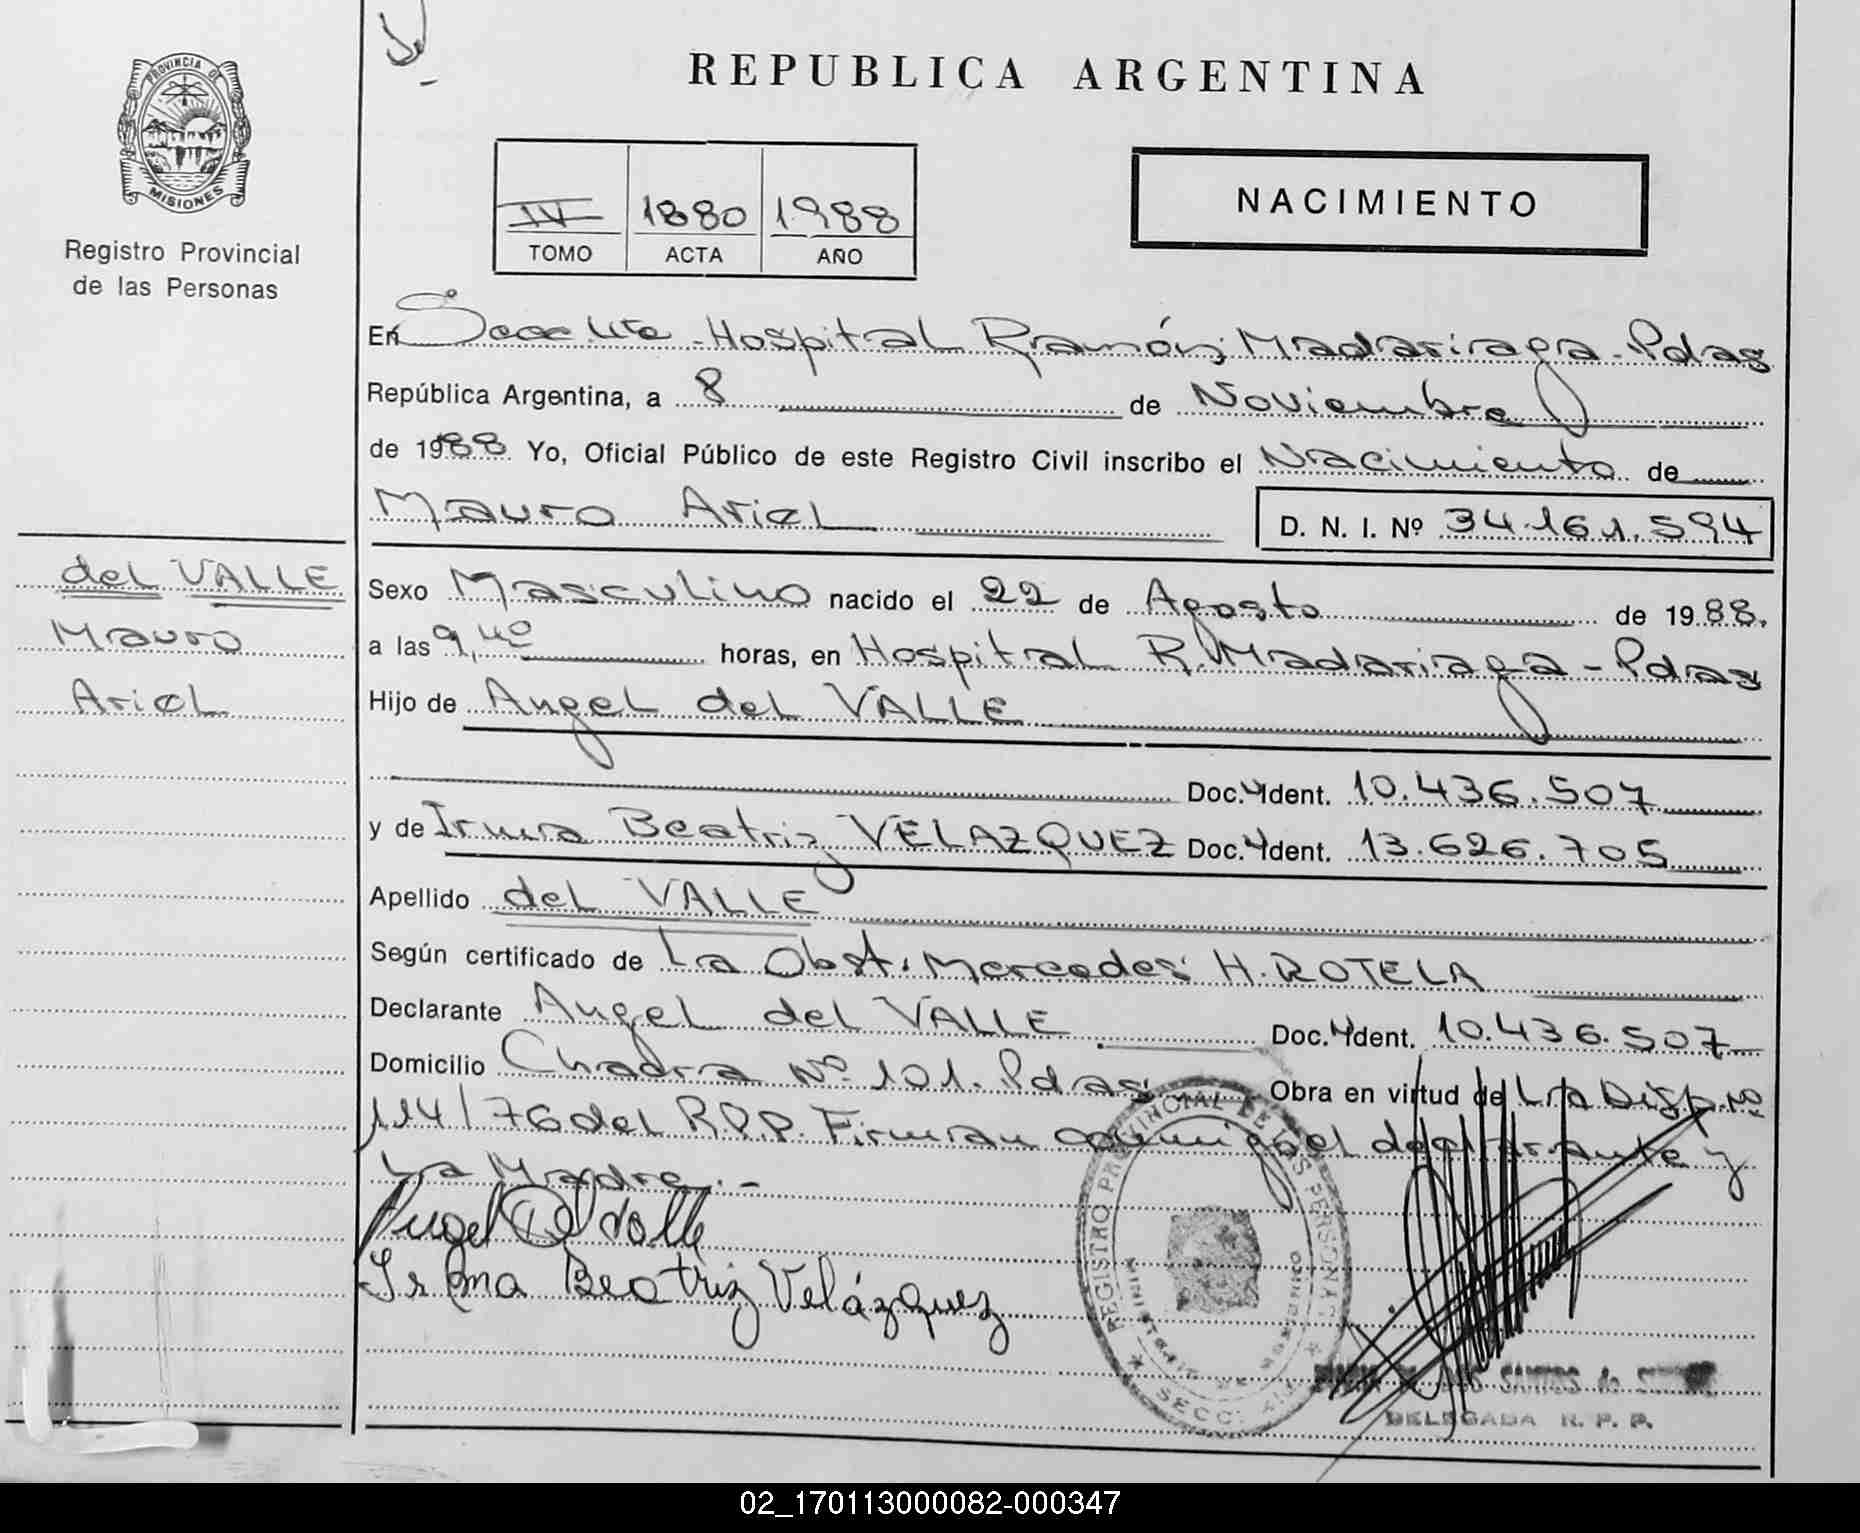 PROVINCIA DE
MISIONES
Registro Provincial
de las Personas
del VALLE
Mauro
Ariel
REPUBLICA ARGENTINA
IV 1880 1988
TOMO ACTA AÑO
NACIMIENTO
En Secc. Hospital Ramón Madariaga - Pdas
República Argentina, a 8 de Noviembre
de 1988 Yo, Oficial Público de este Registro Civil inscribo el Nacimiento de
Mauro Ariel D. N. I. Nº 34.161.594
Sexo Masculino nacido el 22 de Agosto de 1988.
a las 9,40 horas, en Hospital R. Madariaga - Pdas
Hijo de Angel del VALLE
Doc. Ident. 10.436.507
y de Irma Beatriz VELAZQUEZ Doc. Ident. 13.626.705
Apellido del VALLE
Según certificado de La Obst. Mercedes H. ROTELA
Declarante Angel del VALLE Doc. Ident. 10.436.507
Domicilio Chacra Nº 101. Pdas Obra en virtud de La Disp. Nº
114/76 del R.P.P. Firman conmigo el declarante y
La Madre.-
Angel Del Valle
Irma Beatriz Velázquez
REGISTRO PROVINCIAL DE LAS PERSONAS
SECC.
SANTOS de
DELEGADA R. P. P.
02_170113000082-000347